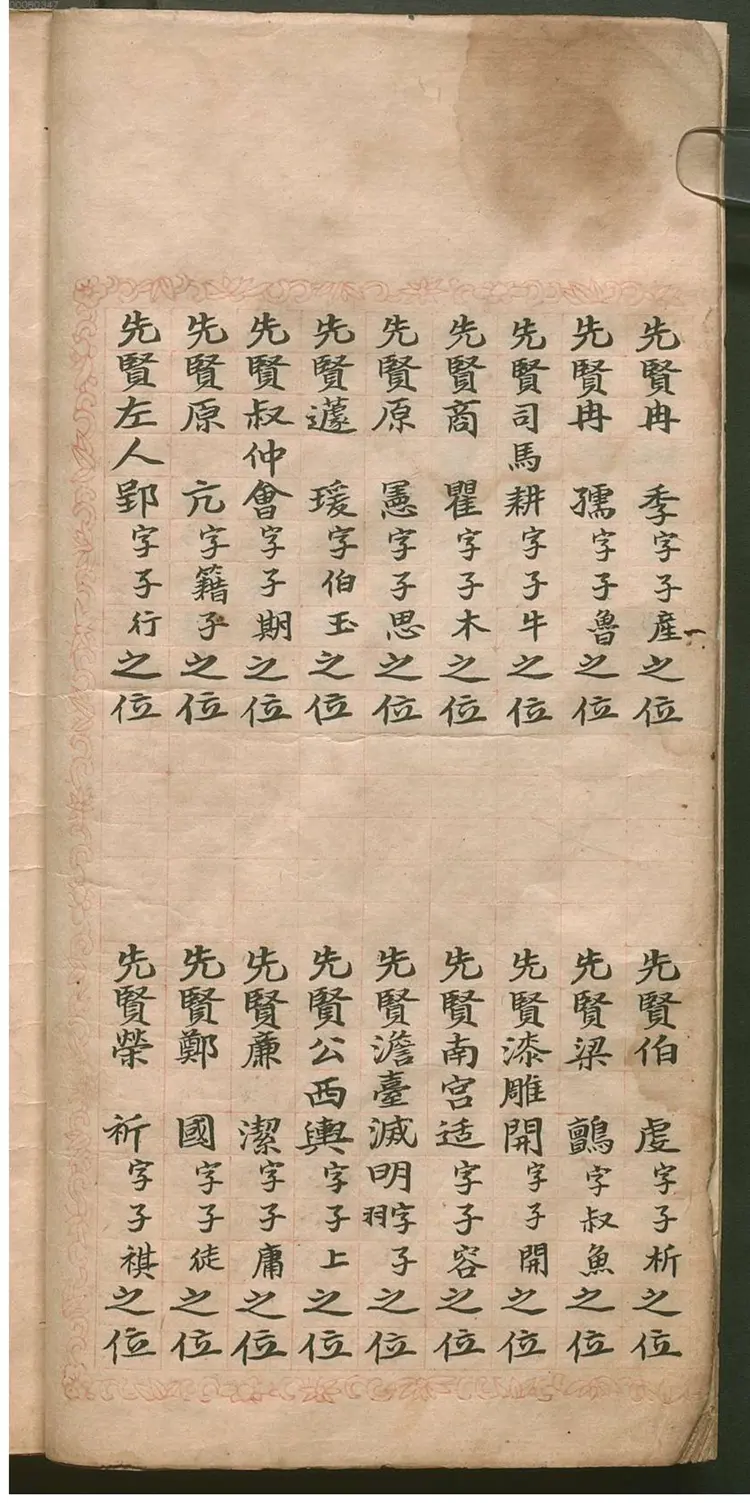 00080347
先賢冉季字子產之位
先賢冉孺字子魯之位
先賢司馬耕字子牛之位
先賢商瞿字子木之位
先賢原憲字子思之位
先賢蘧瑗字伯玉之位
先賢叔仲會字子期之位
先賢原亢字籍子之位
先賢左人郢字子行之位
先賢伯虔字子析之位
先賢梁鸇字叔魚之位
先賢漆雕開字子開之位
先賢南宫适字子容之位
先賢澹臺滅明字子羽之位
先賢公西輿字子上之位
先賢廉潔字子庸之位
先賢鄭國字子徒之位
先賢榮祈字子祺之位